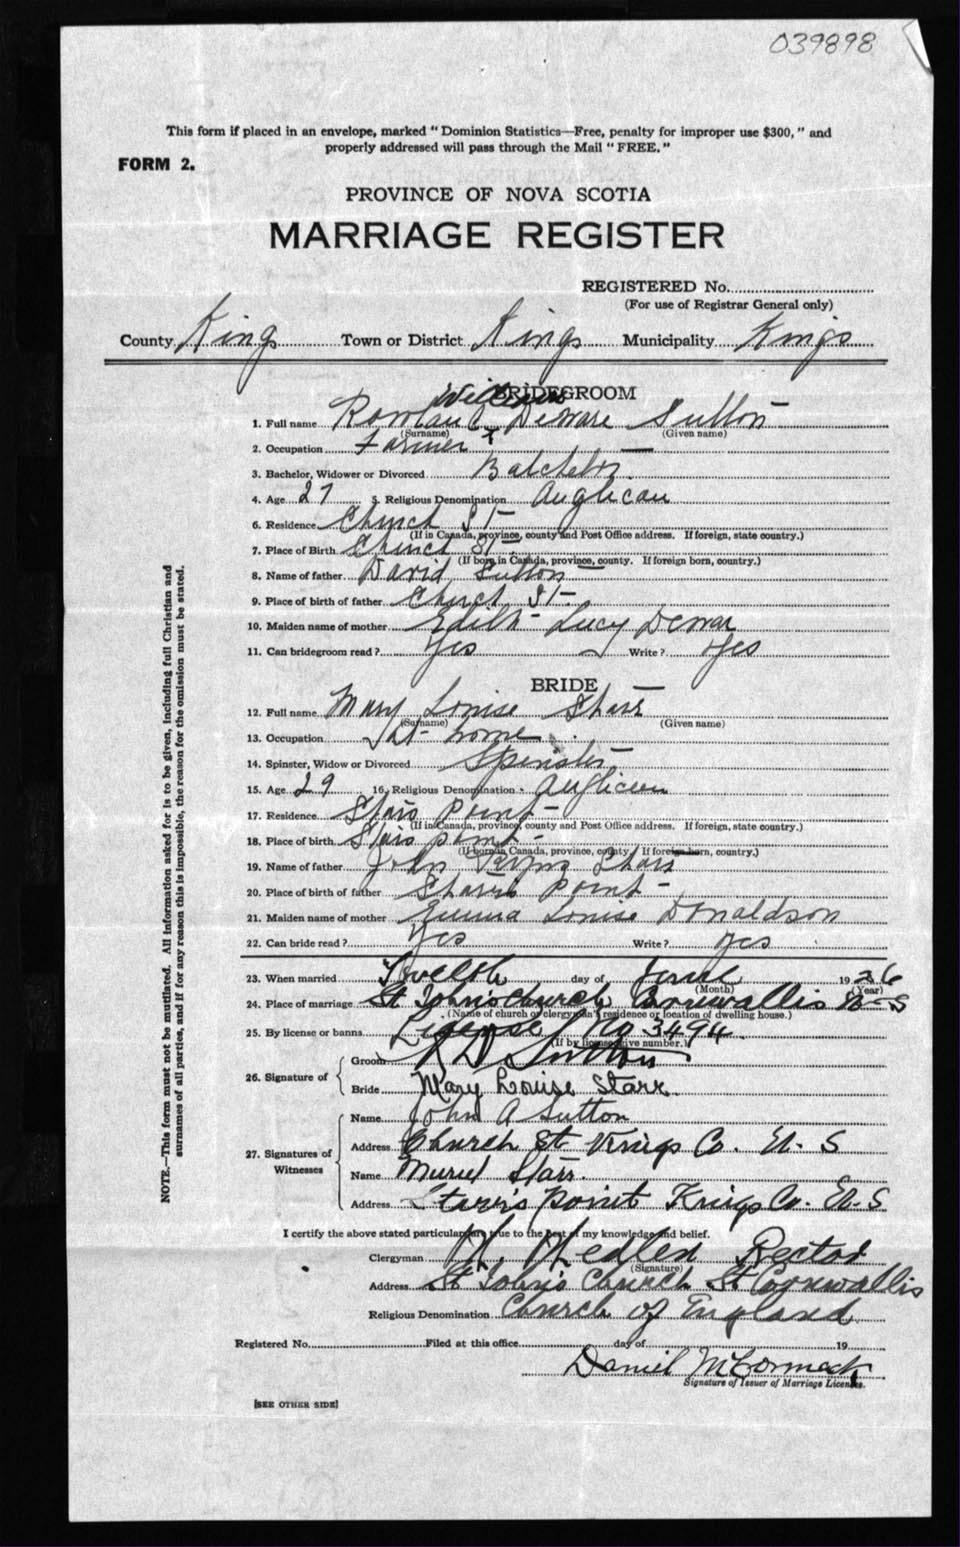 039898
This form if placed in an envelope, marked "Dominion Statistics—Free, penalty for improper use $300," and
properly addressed will pass through the Mail "FREE."
FORM 2.
PROVINCE OF NOVA SCOTIA
MARRIAGE REGISTER
REGISTERED No.
(For use of Registrar General only)
County Kings Town or District Kings Municipality Kings
BRIDEGROOM
1. Full name Rowland Deware Sutton
(Surname) (Given name)
2. Occupation Farmer
3. Bachelor, Widower or Divorced Batchelor
4. Age 27 5. Religious Denomination Anglican
6. Residence Church St
(If in Canada, province, county and Post Office address. If foreign, state country.)
7. Place of Birth Church St
(If born in Canada, province, county. If foreign born, country.)
8. Name of father David Sutton
9. Place of birth of father Church St
10. Maiden name of mother Edith Lucy Dewar
11. Can bridegroom read? Yes Write? Yes
BRIDE
12. Full name Mary Louise Starr
(Surname) (Given name)
13. Occupation At home
14. Spinster, Widow or Divorced Spinster
15. Age 29 16. Religious Denomination Anglican
17. Residence Stars Point
(If in Canada, province, county and Post Office address. If foreign, state country.)
18. Place of birth Stars point
(If born in Canada, province, county. If foreign born, country.)
19. Name of father John Starr
20. Place of birth of father Starrs Point
21. Maiden name of mother Emma Louise Donaldson
22. Can bride read? Yes Write? Yes
23. When married Twelth day of June 1926
(Month) (Year)
24. Place of marriage St John's Church Cornwallis N-S
(Name of church or clergyman's residence or location of dwelling house.)
25. By license or banns License No 3494
(If by license give number.)
26. Signature of Groom R D Sutton
Bride Mary Louise Starr.
27. Signatures of Witnesses Name John A Sutton
Address Church St Kings Co. N. S
Name Muriel Starr.
Address Starr's Point Kings Co. N. S
I certify the above stated particulars are true to the best of my knowledge and belief.
Clergyman Rector
(Signature)
Address St John's Church St Cornwallis
Religious Denomination Church of England
Registered No. Filed at this office day of 19
Daniel McCormack
Signature of Issuer of Marriage Licenses.
[SEE OTHER SIDE]
NOTE.—This form must not be mutilated. All information asked for is to be given, including full Christian and
surnames of all parties, and if for any reason this is impossible, the reason for the omission must be stated.